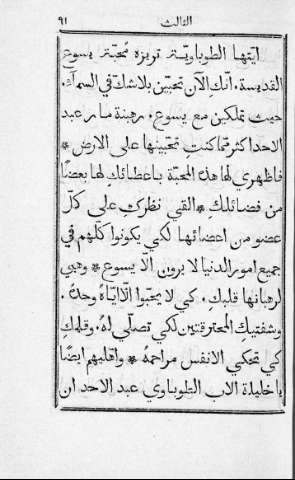 الثالث ٩١
ايتها الطوباوية تريزه محبّة يسوع
القديسة. انّكِ الآن تحبّين بلا شك في السمآء.
حيث تملكين مع يسوع. رهبنة مار عبد
الاحد اكثر ممّا كنتِ تحبّينها على الارض *
فاظهري لها هذه المحبّة باعطائكِ لها بعضًا
من فضائلكِ * القي نظركِ على كلّ
عضو من اعضائها لكي يكونوا كلّهم في
جميع امور الدنيا لا يرون الّا يسوع * وهبي
لرهبانها قلبكِ. كي لا يحبّوا الّا ايّاهُ وحدهُ.
وشفتيكِ المعترقتين لكي تصلّي لهُ. وقلمكِ
كي تحكي الانفس مراحمهُ * واقليهم ايضًا
يا خليلة الاب الطوباوي عبد الاحد ان